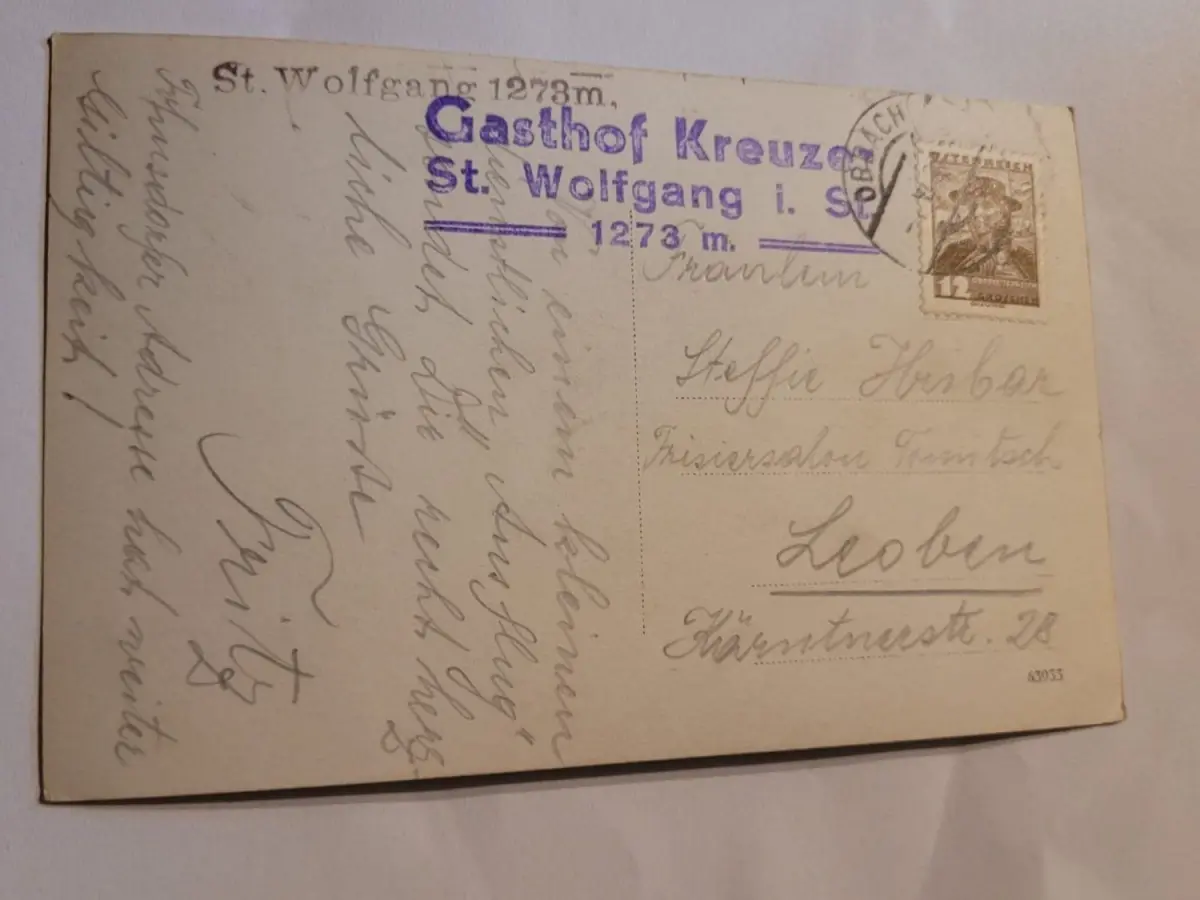 St. Wolfgang 1273 m.
Gasthof Kreuzer
St. Wolfgang i. St.
1273 m.
OBDACH
ÖSTERREICH
12
GROSCHEN
Von einem kleinen
"dienstlichen Ausflug"
sendet Dir recht herz-
liche Grüsse
Fritz
Adresse hat weiter
Gültigkeit!
Fräulein
Steffie
Frisiersalon
Leoben
Kärntnerstr. 28
63033